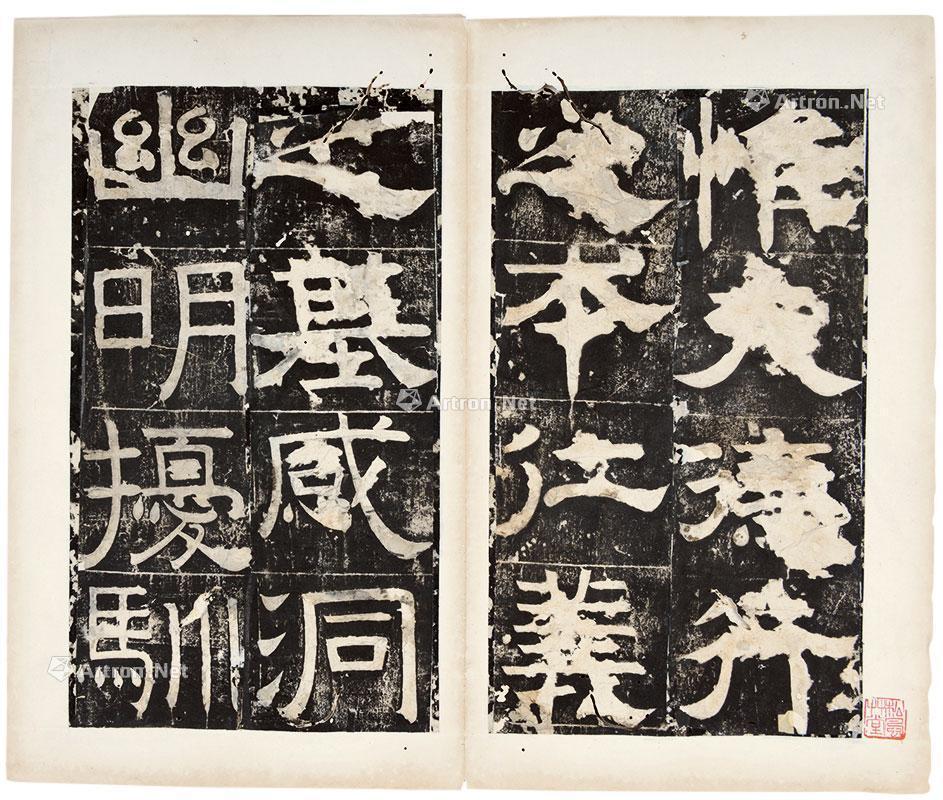 惟夫
之本仁義
之基感洞
幽明擾馴
Artron.Net
Artron.Net
Artron.Net